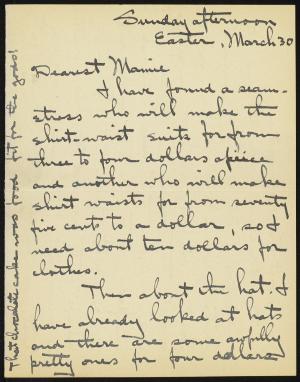 Sunday afternoon
Easter, March 30
Dearest Mamie
I have found a seam-
stress who will make the
shirt-waist suits for from
three to four dollars apiece
and another who will make
shirt waists for from seventy
five cents to a dollar, so I
need about ten dollars for
clothes.
Then about the hat. I
have already looked at hats
and there are some awfully
pretty ones for four dollars
That chocolate cake was food fit for the gods!